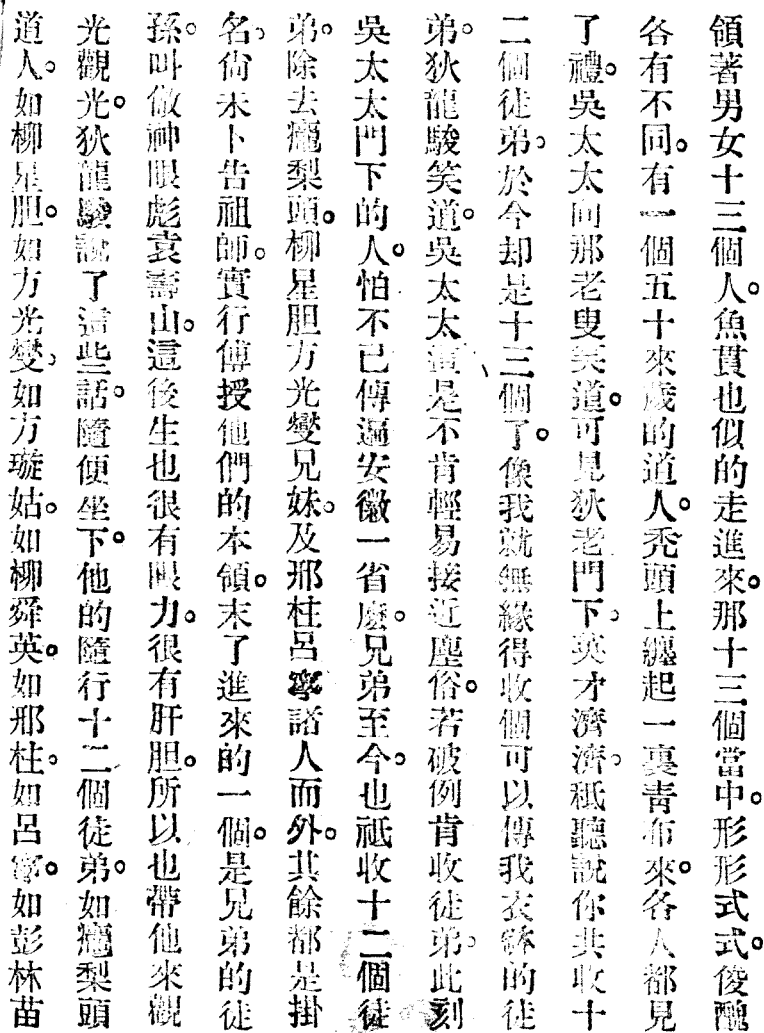 領著男女十三個人。魚貫也似的走進來。那十三個當中。形形式式。俊醜
各有不同。有一個五十來歲的道人。禿頭上纏起一裏青布來。各人都見
了禮。吳太太向那老叟笑道。可見狄老門下。英才濟濟。祇聽說你共收十
二個徒弟。於今却是十三個了。像我就無緣得收個可以傳我衣鉢的徒
弟。狄龍駿笑道。吳太太這是不肯輕易接近塵俗。若破例肯收徒弟。此刻
吳太太門下的人。怕不已傳遍安徽一省麽。兄弟至今。也祇收十二個徒
弟。除去癩梨頭。柳星胆方光燮兄妹。及邢柱呂寧諸人而外。其餘都是掛
名。尙未卜告祖師。實行傳授他們的本領。末了進來的一個。是兄弟的徒
孫。叫做神眼彪袁壽山。這後生也很有眼力。很有肝胆。所以也帶他來觀
光觀光。狄龍駿說了這些話。隨便坐下。他的隨行十二個徒弟。如癩梨頭
道人。如柳星胆。如方光燮。如方璇姑。如柳舜英。如邢柱。如呂寧。如彭林苗